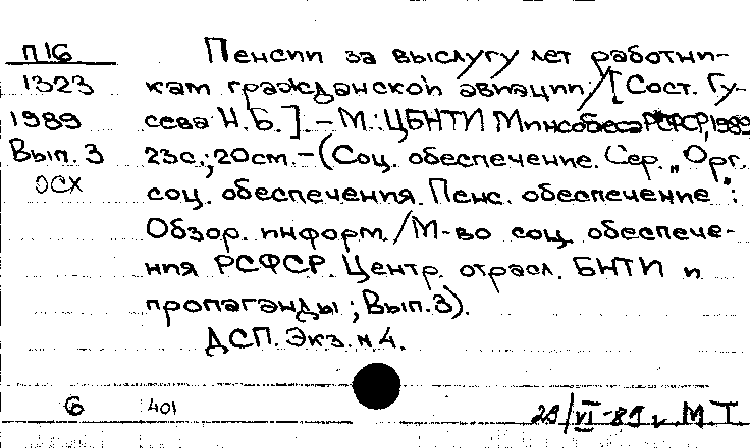 П16
1323
1989
Вып. 3
ОСХ
Пенсии за выслугу лет работни-
кам гражданской авиации / [Сост. Гу-
сева Н. Б.]. – М.: ЦБНТИ Минсобеса РСФСР, 1989
23с.; 20см. – (Соц. обеспечение. Сер. „Орг.
соц. обеспечения. Пенс. обеспечение":
Обзор. информ. / М-во соц. обеспече-
ния РСФСР. Центр. отрасл. БНТИ и
пропаганды ; Вып. 3).
ДСП. Экз. № 4.
6 401 29/VI-89 г. М. Т.